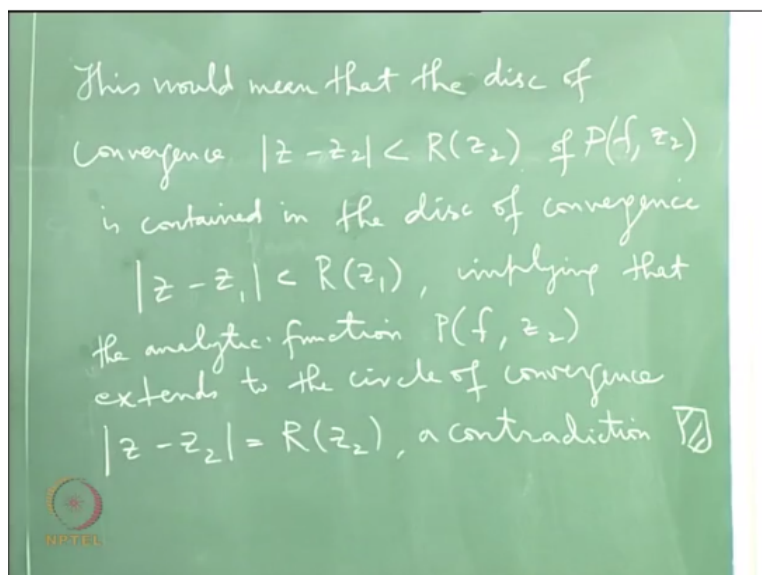 This would mean that the disc of
convergence |z - z₂| < R(z₂) of P(f, z₂)
is contained in the disc of convergence
|z - z₁| < R(z₁), implying that
the analytic function P(f, z₂)
extends to the circle of convergence
|z - z₂| = R(z₂), a contradiction
NPTEL